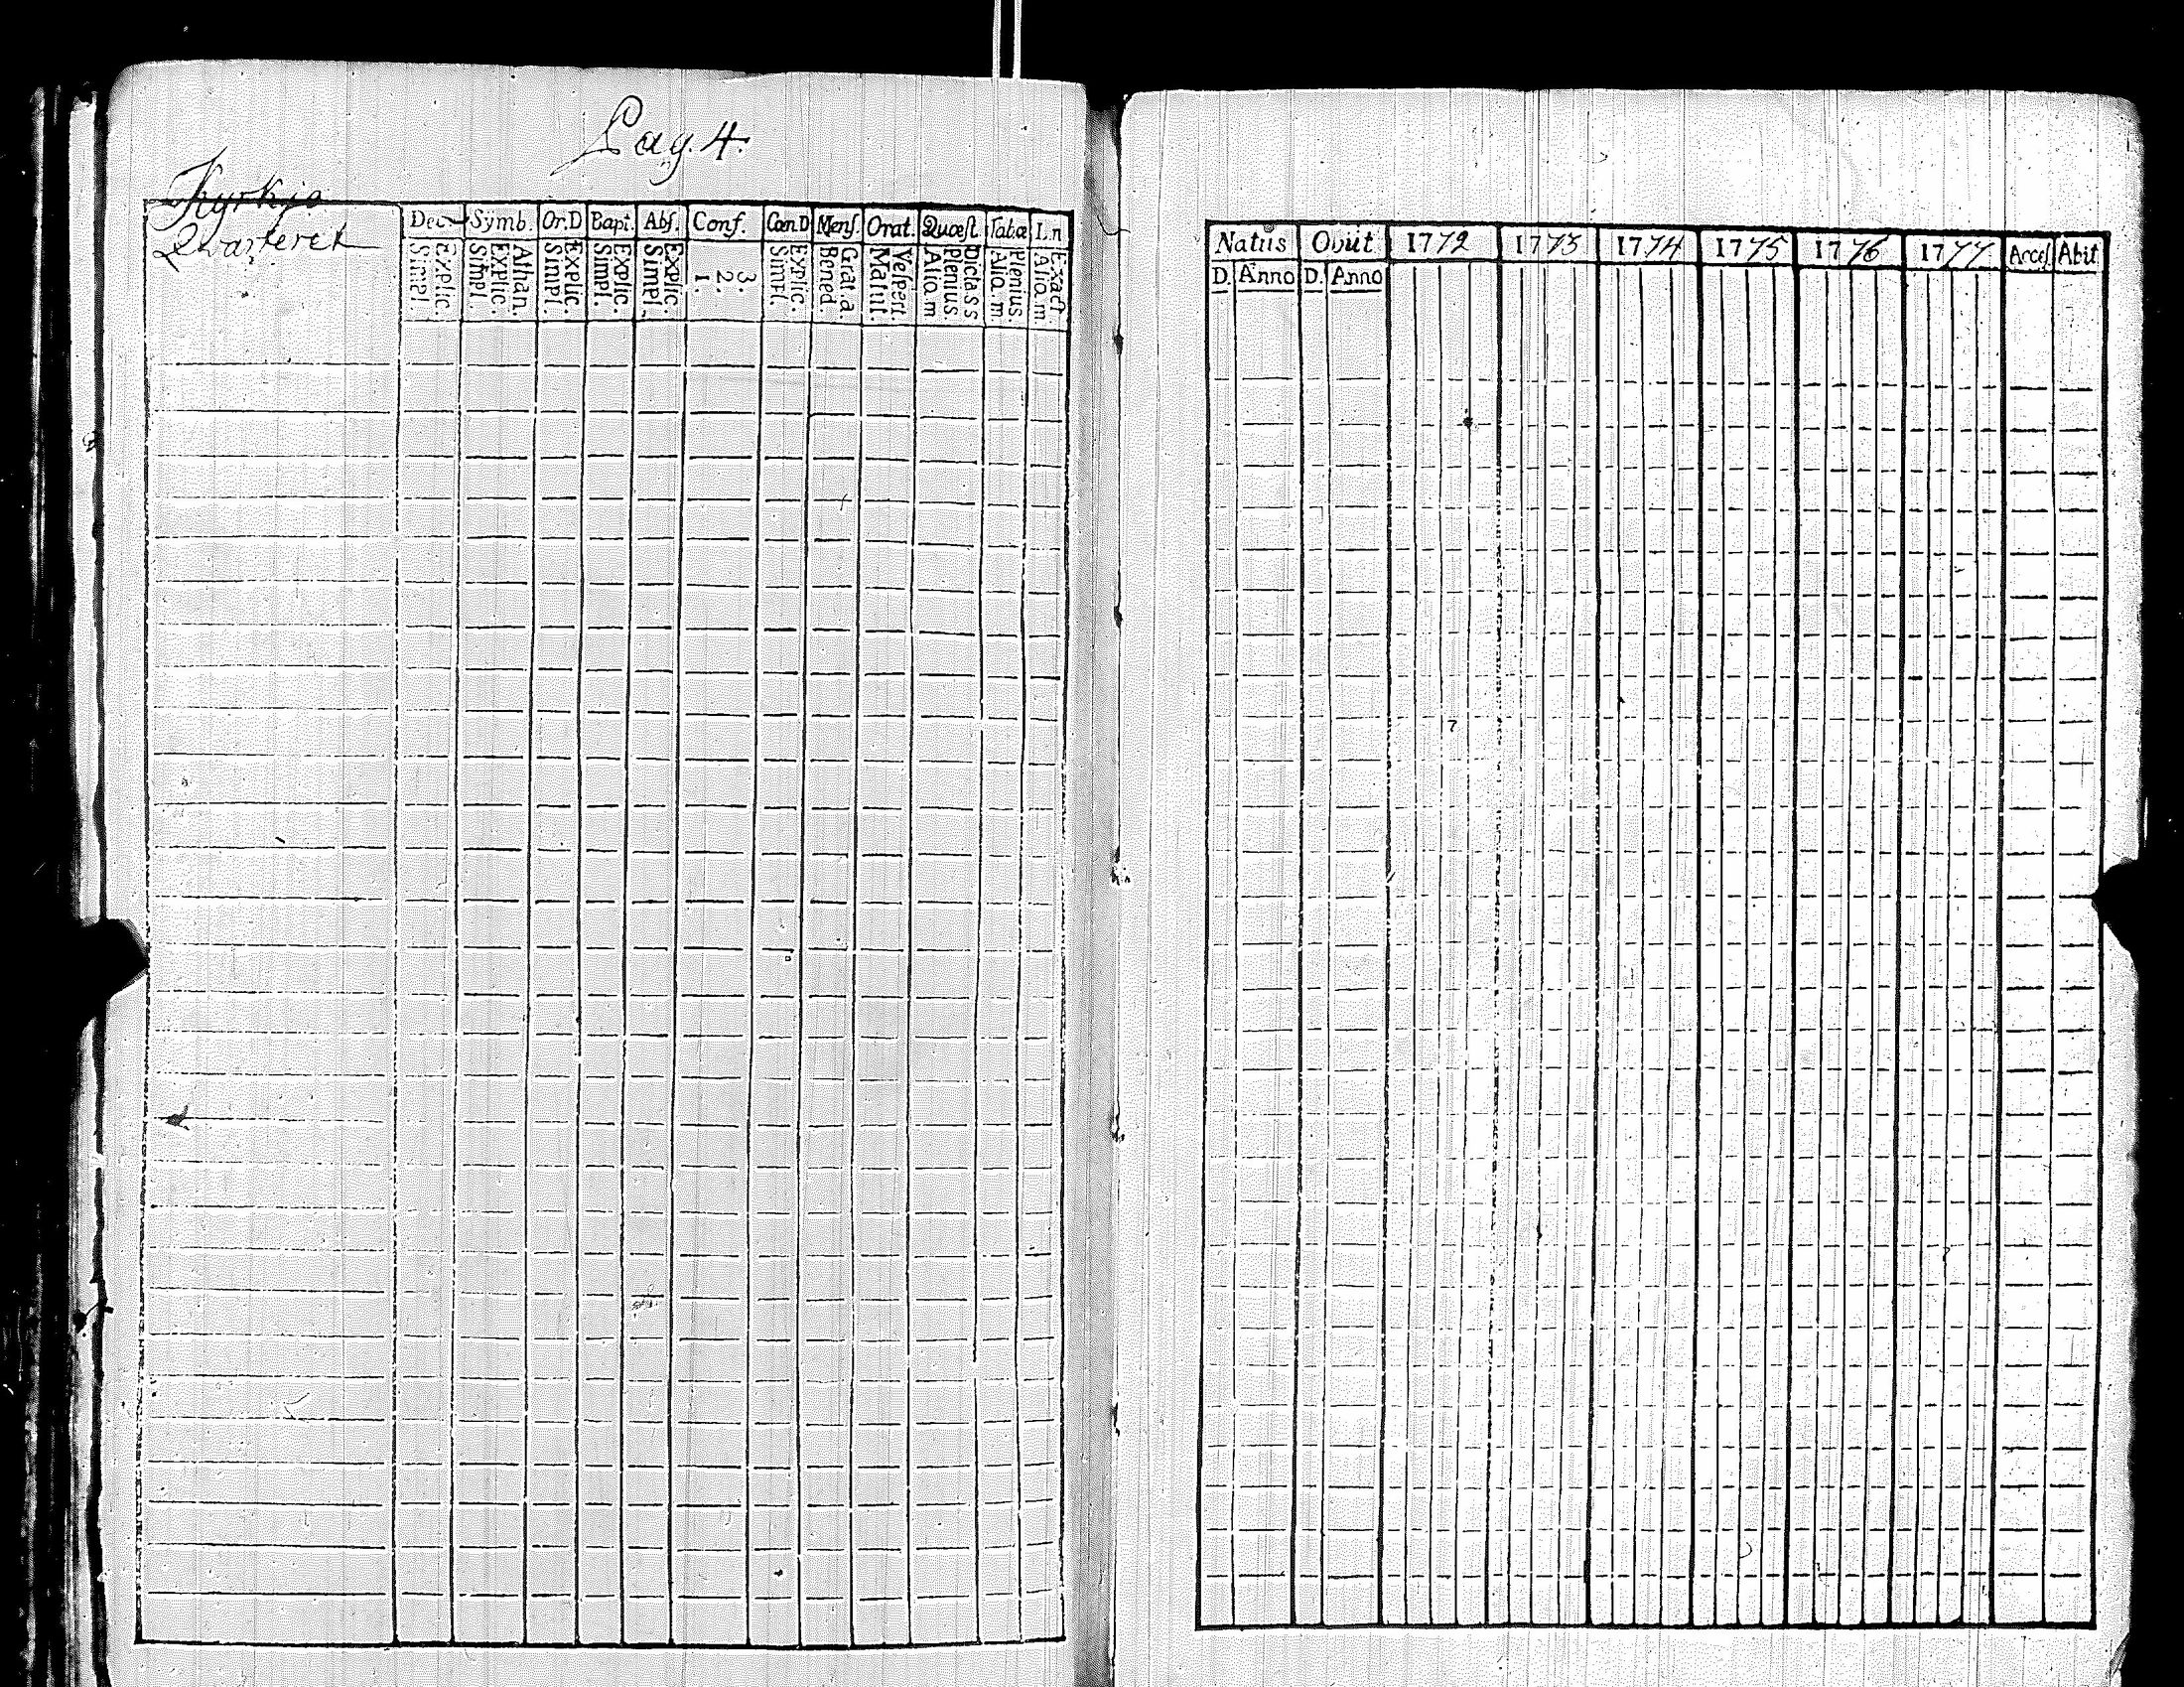 Pag. 4.
Kyrkjo
Qvarteret
Dec. Symb. Or.D Bapt. Abs. Conf. Cœn.D Mens. Orat. Quæst. Tabæ I.n
Simpl. Explic. Simpl. Explic. Athan. Simpl. Explic. Simpl. Explic. Simpl. Explic. 1. 2. 3. Simpl. Explic. Bened. Grat. a Matut. Vespert. Alio. m Plenius Dicta SS Alio. m Plenius. Alio. m. Exact
Natus Obiit 1772 1773 1774 1775 1776 1777 Acces. Abit
D. Anno D. Anno